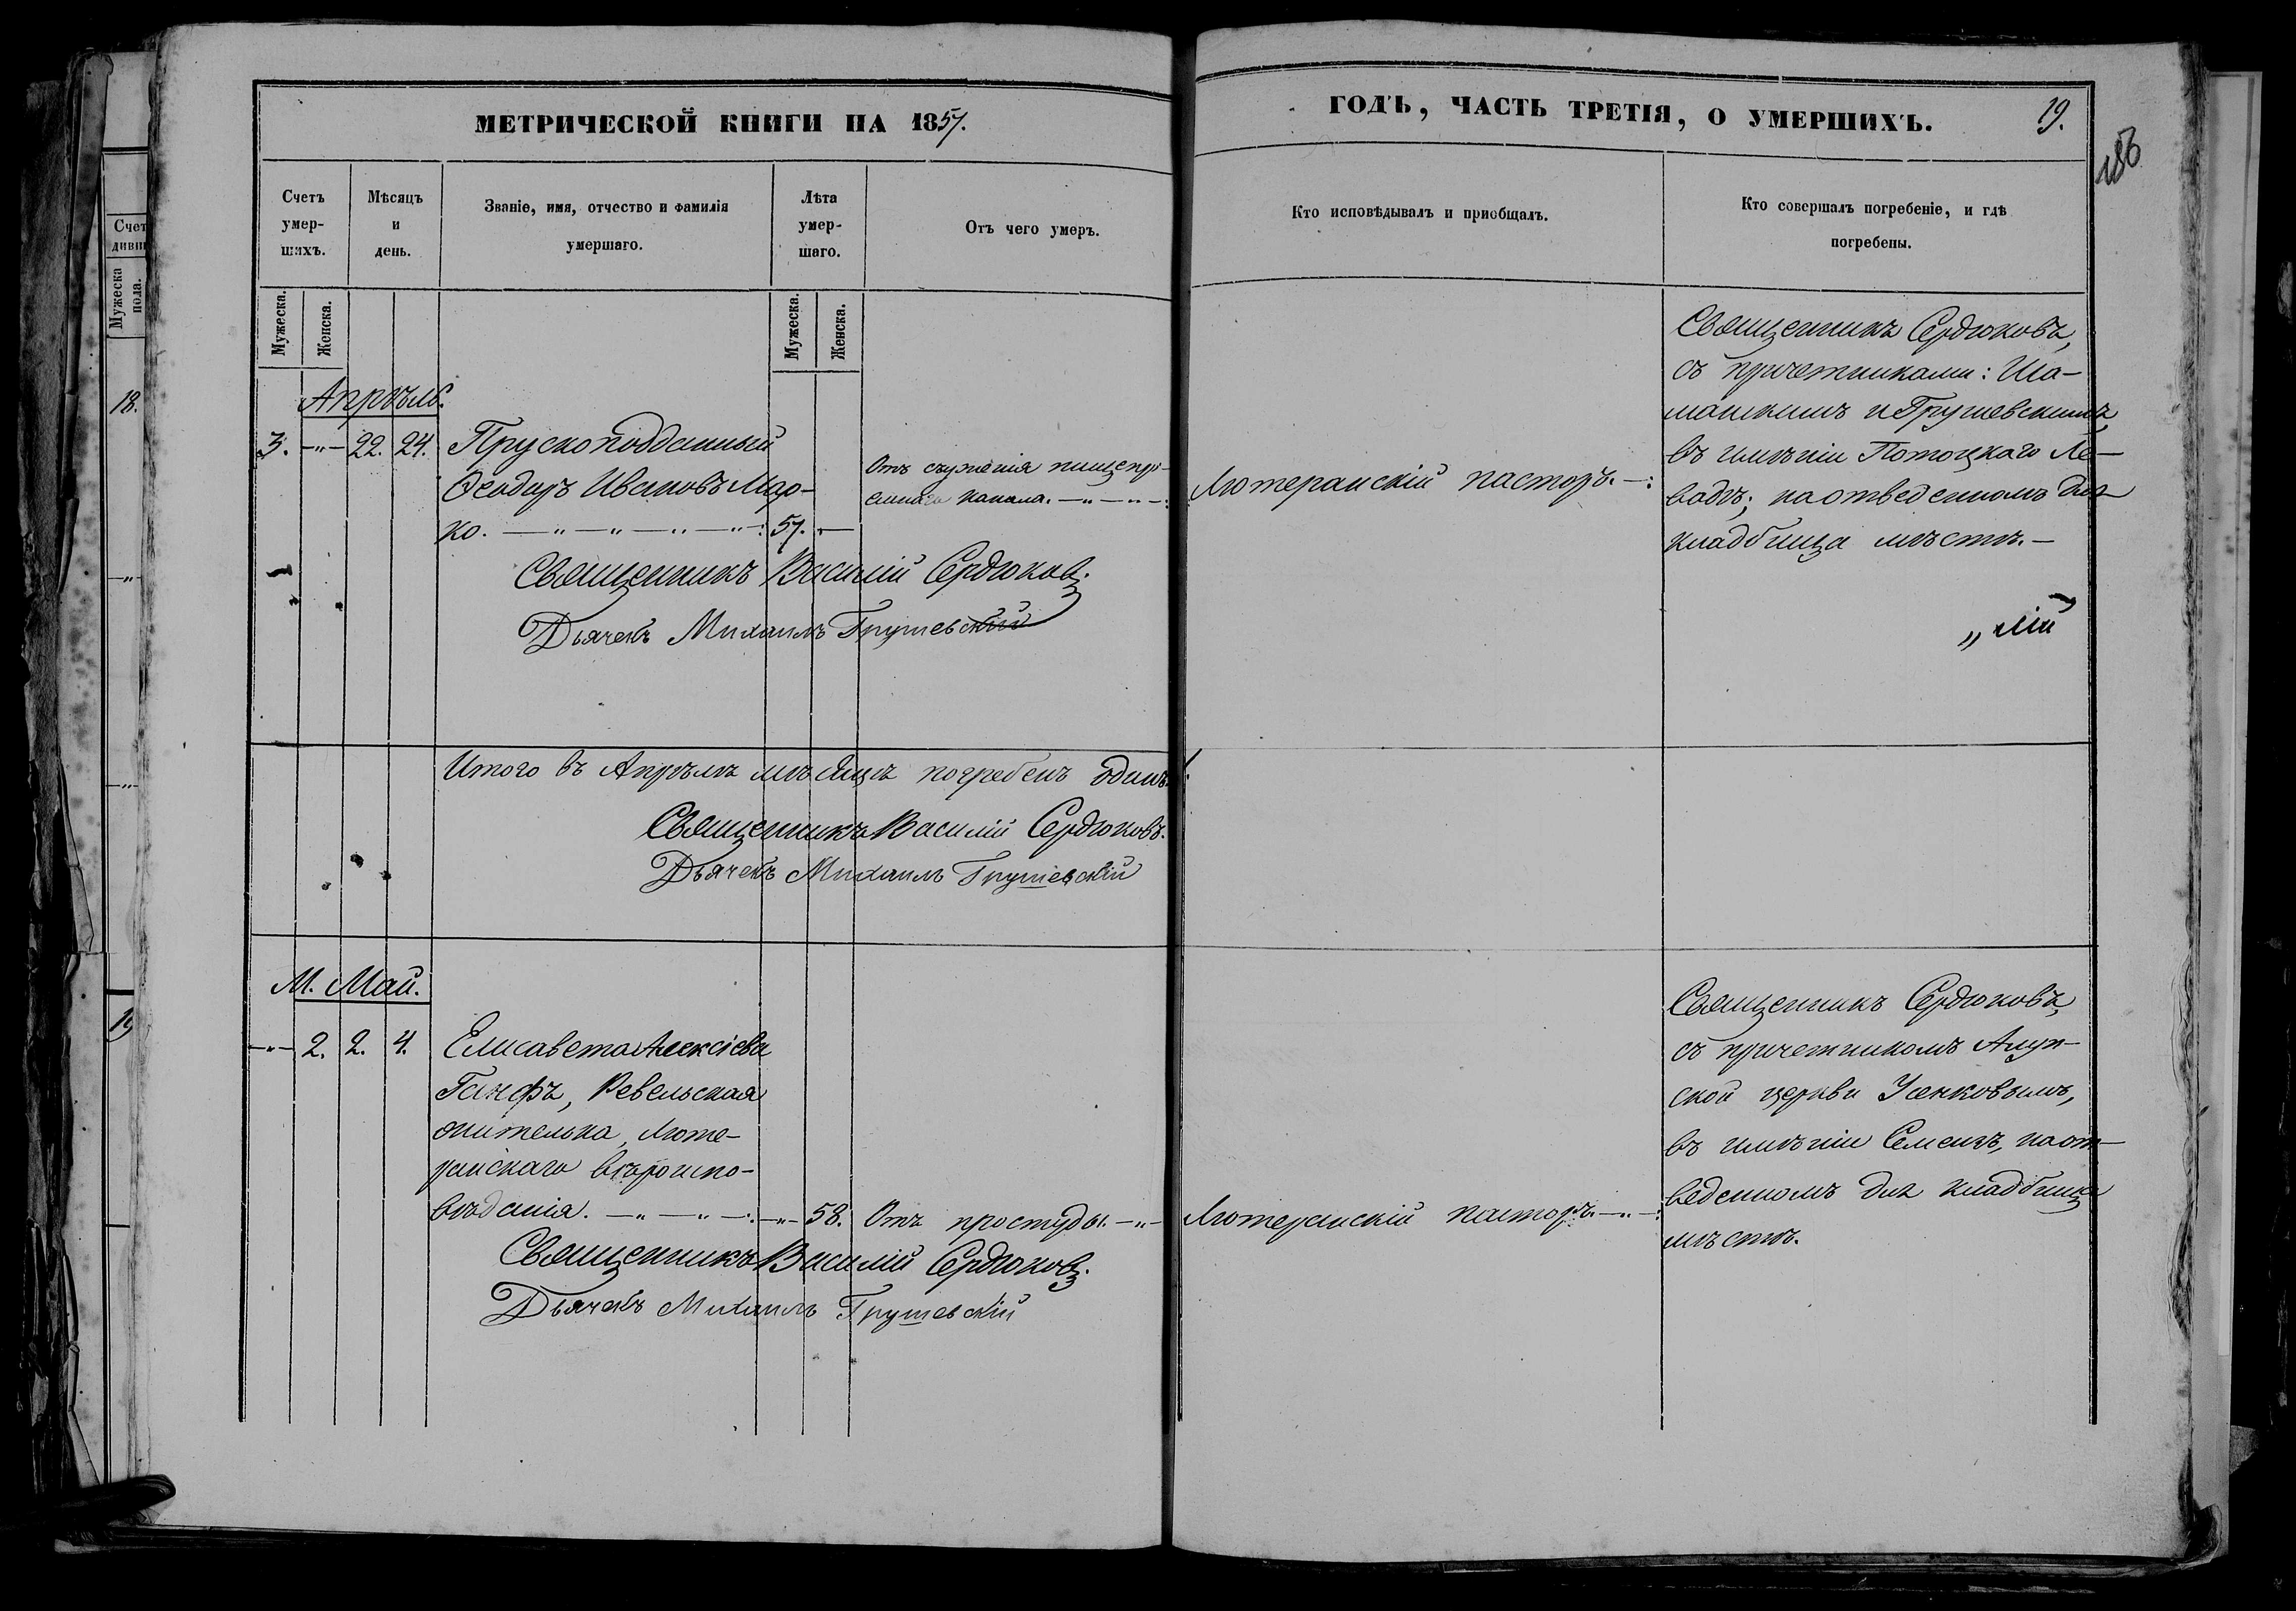 МЕТРИЧЕСКОЙ КНИГИ НА 1857.
ГОДЪ, ЧАСТЬ ТРЕТІЯ, О УМЕРШИХЪ.
19.
Счетъ умер-шихъ.
Мѣсяцъ и день.
Званіе, имя, отчество и фамилія умершаго.
Лѣта умер-шаго.
Отъ чего умеръ.
Кто исповѣдывалъ и пріобщалъ.
Кто совершалъ погребеніе, и гдѣ погребены.
Мужеска.
Женска.
Мужеска.
Женска.
Счет
Мужеска пола.
18.
Апрѣль.
3. —„— 22. 24. Прускоподданный
Ѳеодоръ Ивановъ Мар-
ко. —„—„—„—„—: 57. —
Отъ съуженія пищепрі-
емнаго канала. —„—„—:
Лютеранскій пасторъ. —:
Священникъ Сердюковъ,
съ причетниками: Ша-
манскимъ и Грушевскимъ,
въ имѣніи Потоцкаго Ле-
вадѣ; на отведенномъ для
кладбища мѣстѣ. —
Священникъ Василій Сердюковъ.
Дьячекъ Михаилъ Грушевскій
Итого въ Апрѣлѣ мѣсяцѣ погребенъ одинъ.
Священникъ Василій Сердюковъ.
Дьячекъ Михаилъ Грушевскій
М. Май.
—„— 2. 2. 4. Елисавета Алексіева
Ганфъ, Ревельская
жителька, Люте-
ранскаго вѣроиспо-
вѣданія. —„—„—:—„— 58. Отъ простуды. —„—
Лютеранскій пасторъ. —„—:
Священникъ Сердюковъ,
съ причетникомъ Алуп-
ской церкви Усенковымъ,
въ имѣніи Семеизъ, на от-
веденномъ для кладбища
мѣстѣ.
Священникъ Василій Сердюковъ.
Дьячекъ Михаилъ Грушевскій